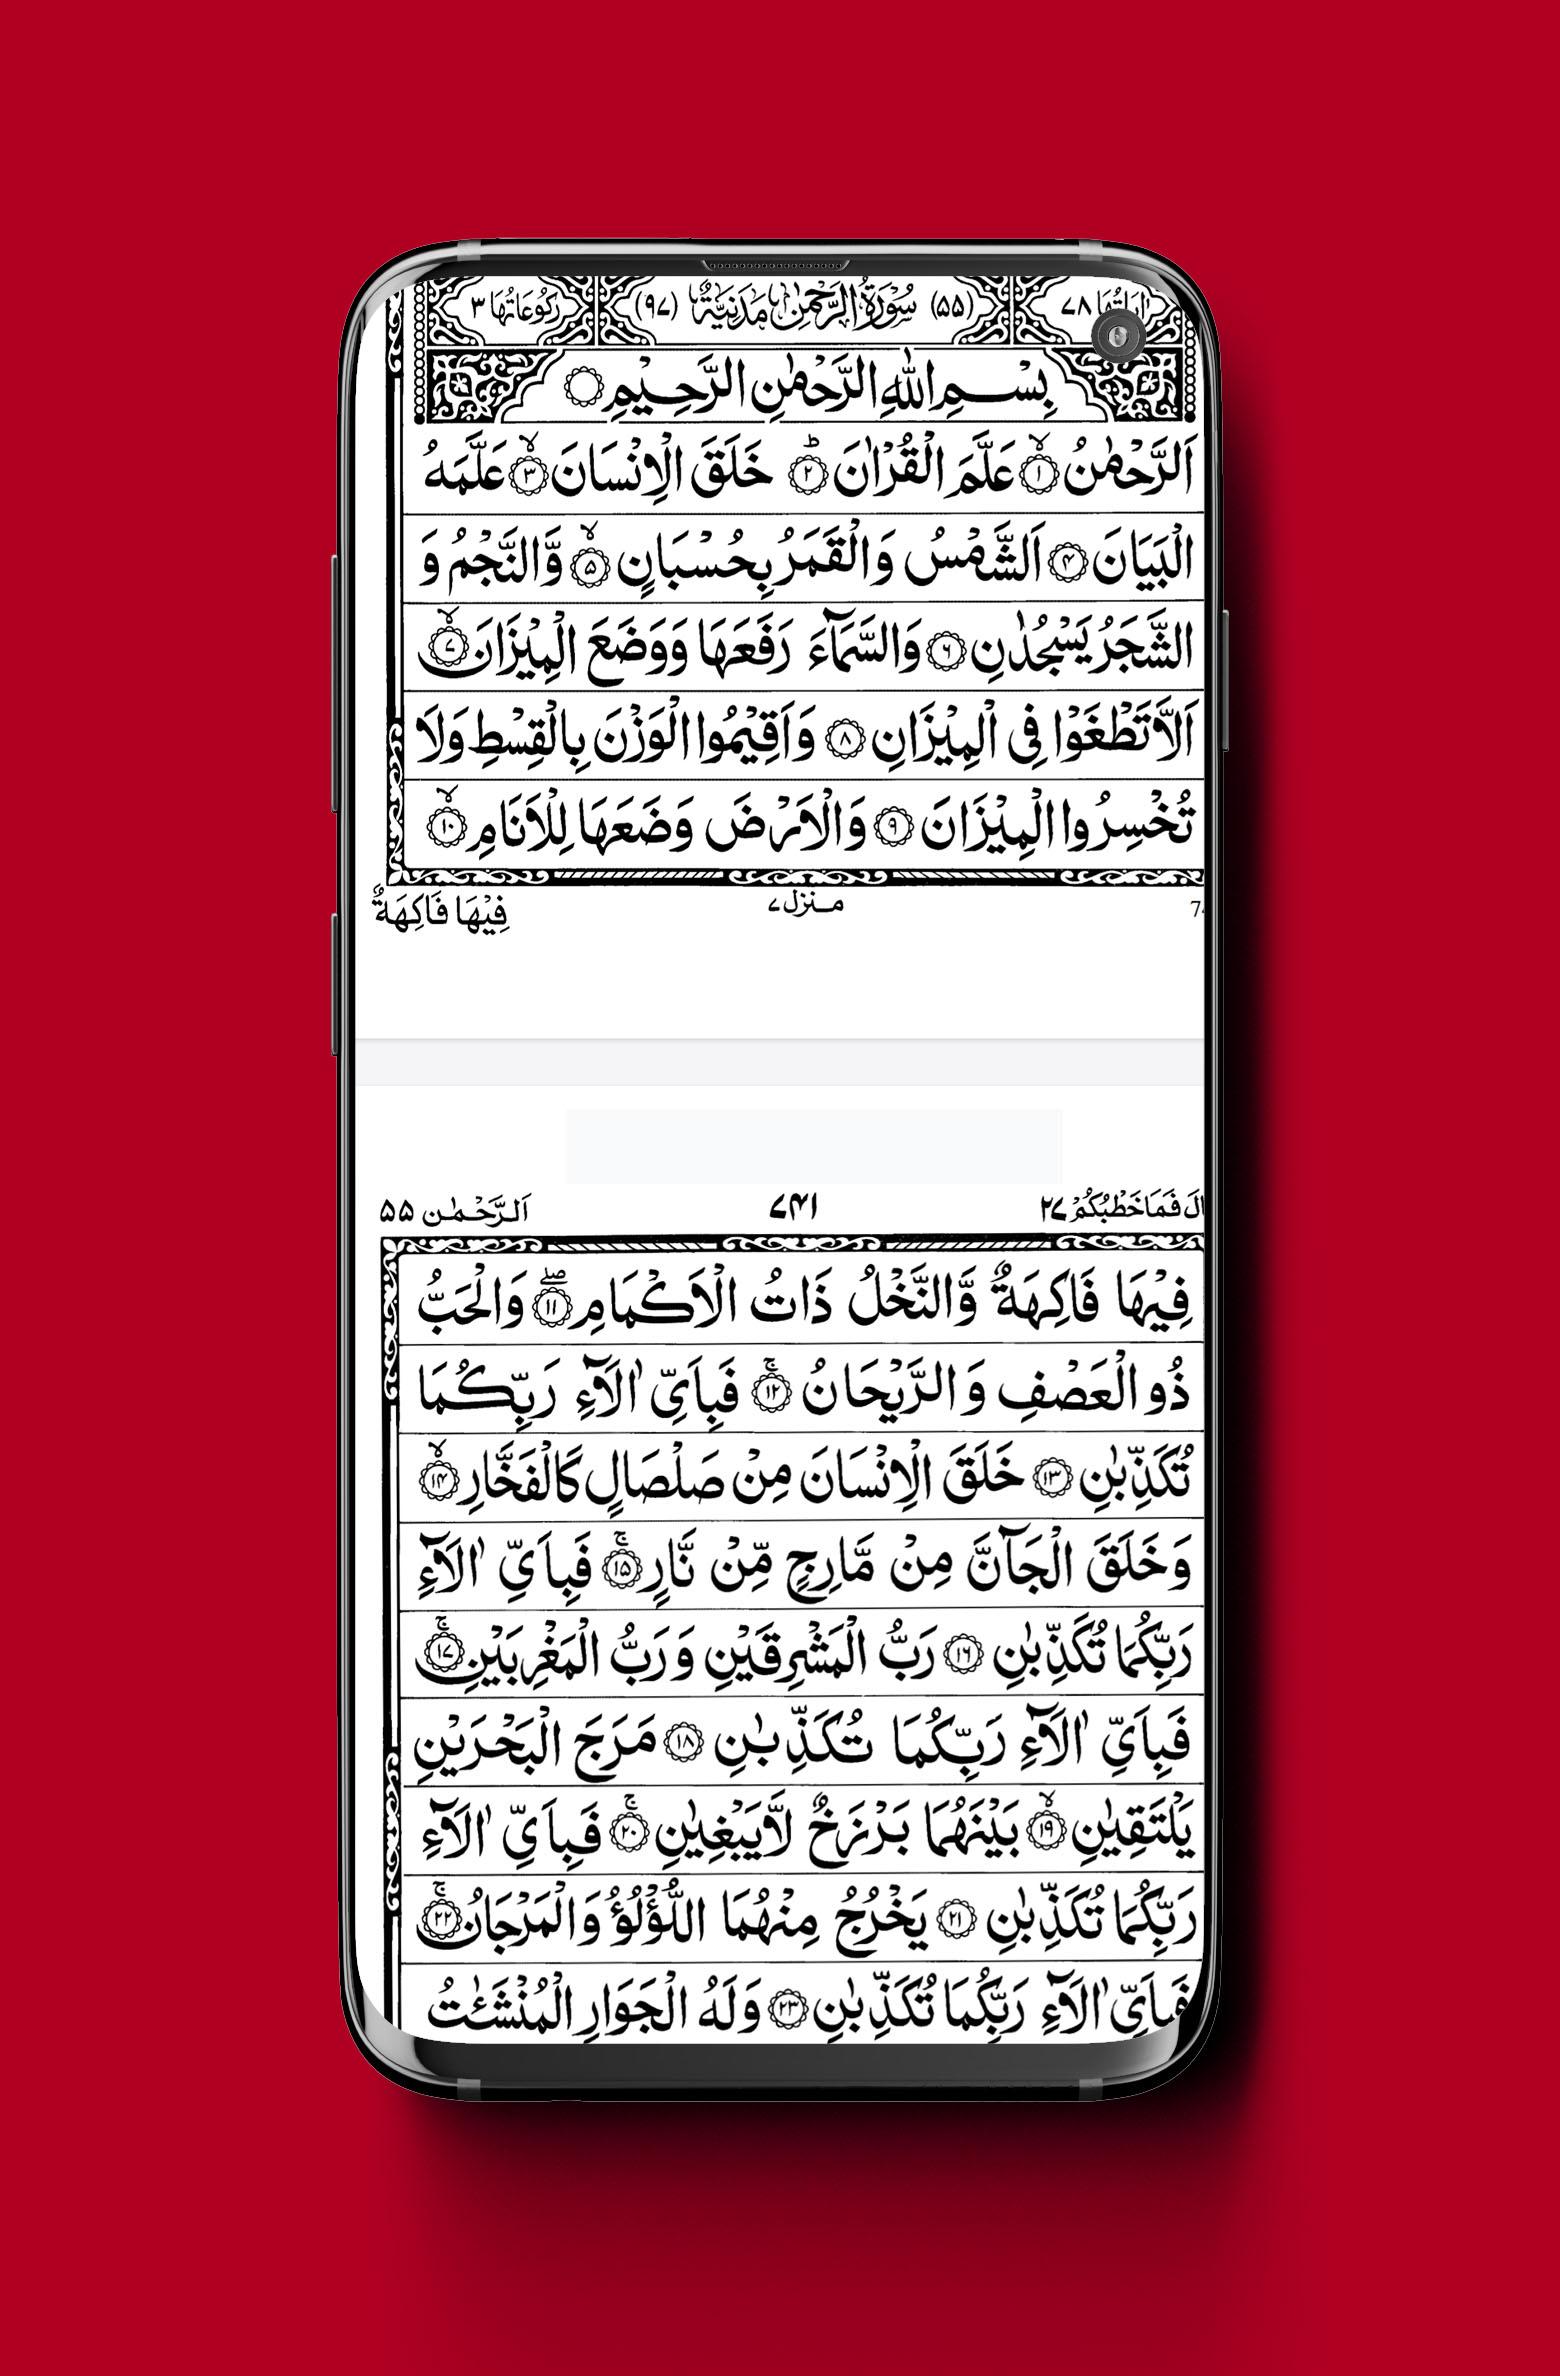 اٰیَاتُهَا ٧٨ (۵۵) سُوْرَةُ الرَّحْمٰنِ مَدَنِیَّةٌ (٩٧) رُكُوْعَاتُهَا ٣
بِسْمِ اللّٰهِ الرَّحْمٰنِ الرَّحِیْمِ
اَلرَّحْمٰنُ ۙ﴿۱﴾ عَلَّمَ الْقُرْاٰنَ ؕ﴿۲﴾ خَلَقَ الْاِنْسَانَ ۙ﴿۳﴾ عَلَّمَهُ
الْبَیَانَ ﴿۴﴾ اَلشَّمْسُ وَالْقَمَرُ بِحُسْبَانٍ ۙ﴿۵﴾ وَّالنَّجْمُ وَ
الشَّجَرُ یَسْجُدٰنِ ﴿۶﴾ وَالسَّمَآءَ رَفَعَهَا وَوَضَعَ الْمِیْزَانَ ۙ﴿۷﴾
اَلَّا تَطْغَوْا فِی الْمِیْزَانِ ﴿۸﴾ وَاَقِیْمُوا الْوَزْنَ بِالْقِسْطِ وَلَا
تُخْسِرُوا الْمِیْزَانَ ﴿۹﴾ وَالْاَرْضَ وَضَعَهَا لِلْاَنَامِ ۙ﴿۱۰﴾
مـنزل ٧
فِیْهَا فَاكِهَةٌ
الَ فَمَاخَطْبُكُمْ ۲۷ ۷۴۱ اَلرَّحْمٰن ۵۵
فِیْهَا فَاكِهَةٌ وَّالنَّخْلُ ذَاتُ الْاَكْمَامِ ۖ﴿۱۱﴾ وَالْحَبُّ
ذُو الْعَصْفِ وَالرَّیْحَانُ ۚ﴿۱۲﴾ فَبِاَیِّ اٰلَآءِ رَبِّكُمَا
تُكَذِّبٰنِ ﴿۱۳﴾ خَلَقَ الْاِنْسَانَ مِنْ صَلْصَالٍ كَالْفَخَّارِ ۙ﴿۱۴﴾
وَخَلَقَ الْجَآنَّ مِنْ مَّارِجٍ مِّنْ نَّارٍ ۚ﴿۱۵﴾ فَبِاَیِّ اٰلَآءِ
رَبِّكُمَا تُكَذِّبٰنِ ﴿۱۶﴾ رَبُّ الْمَشْرِقَیْنِ وَرَبُّ الْمَغْرِبَیْنِ ۚ﴿۱۷﴾
فَبِاَیِّ اٰلَآءِ رَبِّكُمَا تُكَذِّبٰنِ ﴿۱۸﴾ مَرَجَ الْبَحْرَیْنِ
یَلْتَقِیٰنِ ۙ﴿۱۹﴾ بَیْنَهُمَا بَرْزَخٌ لَّا یَبْغِیٰنِ ۚ﴿۲۰﴾ فَبِاَیِّ اٰلَآءِ
رَبِّكُمَا تُكَذِّبٰنِ ﴿۲۱﴾ یَخْرُجُ مِنْهُمَا اللُّؤْلُؤُ وَالْمَرْجَانُ ۚ﴿۲۲﴾
فَبِاَیِّ اٰلَآءِ رَبِّكُمَا تُكَذِّبٰنِ ﴿۲۳﴾ وَلَهُ الْجَوَارِ الْمُنْشَئٰتُ